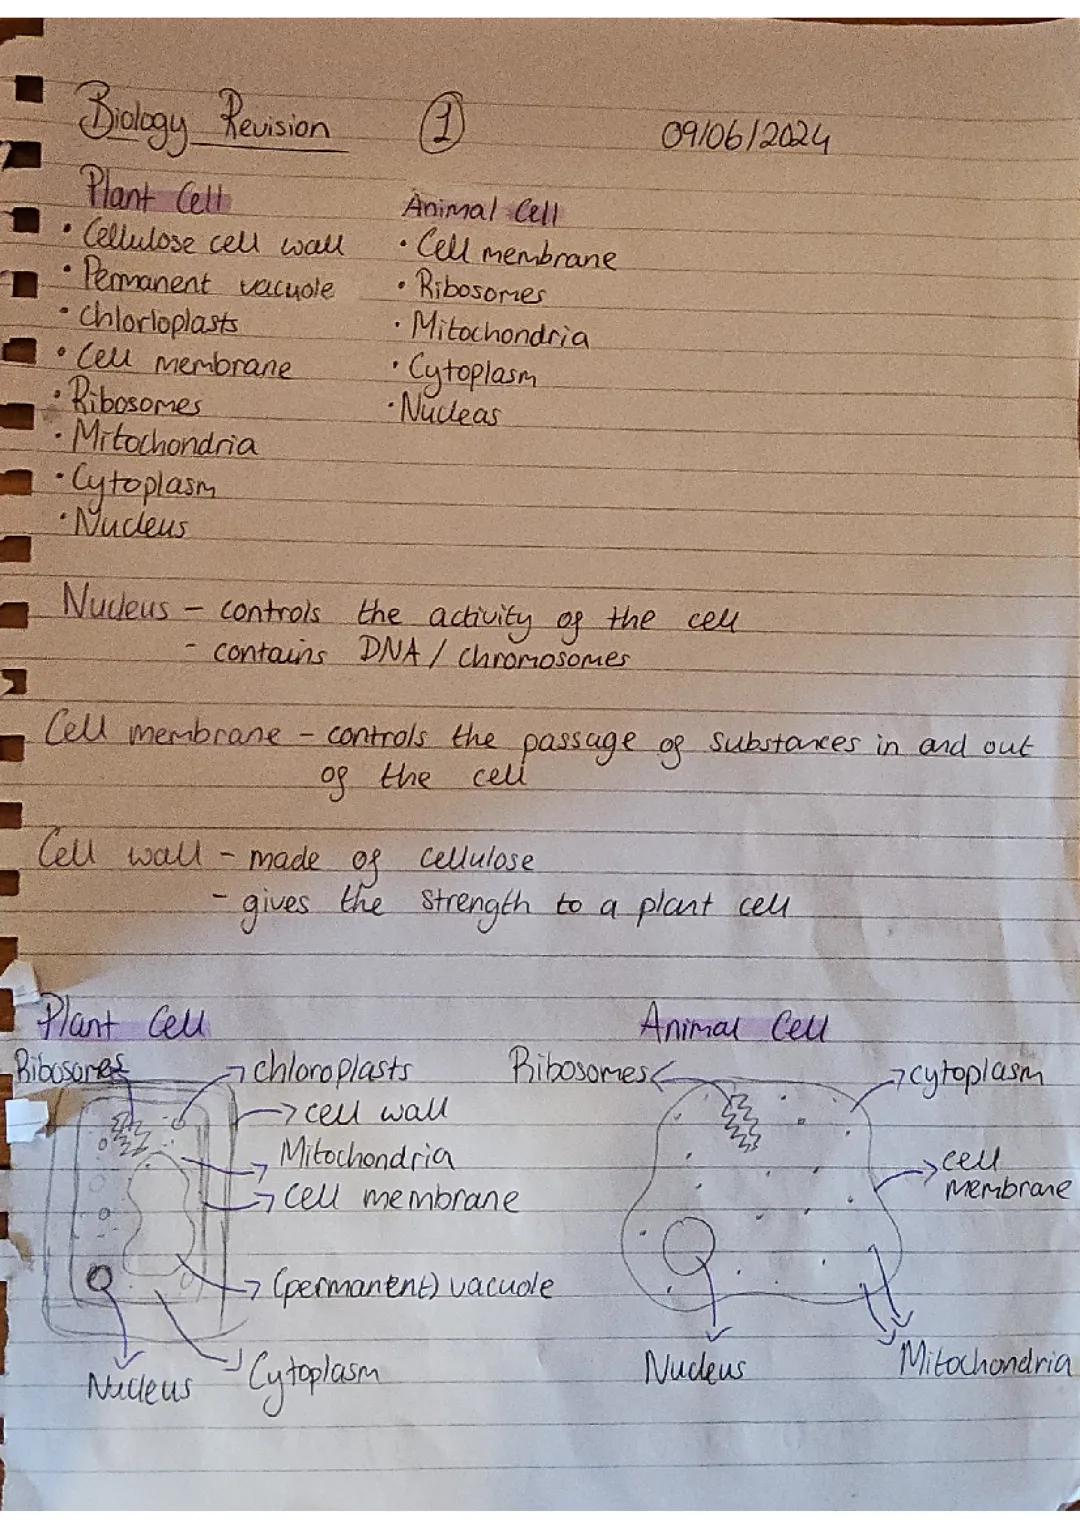 Biology Revision 1 09/06/2024
Plant Cell
• Cellulose cell wall
• Permanent vacuole
• Chlorloplasts
• Cell membrane
• Ribosomes
• Mitochondria
• Cytoplasm
• Nucleus
Animal Cell
• Cell membrane
• Ribosomes
• Mitochondria
• Cytoplasm
• Nucleas
Nucleus – controls the activity of the cell
- contains DNA / chromosomes
Cell membrane – controls the passage of substances in and out
of the cell
Cell wall – made of cellulose
- gives the strength to a plant cell
Plant Cell
Ribosomes
chloroplasts
cell wall
Mitochondria
Cell membrane
(permanent) vacuole
Nucleus
Cytoplasm
Animal Cell
Ribosomes
cytoplasm
cell
membrane
Nucleus
Mitochondria